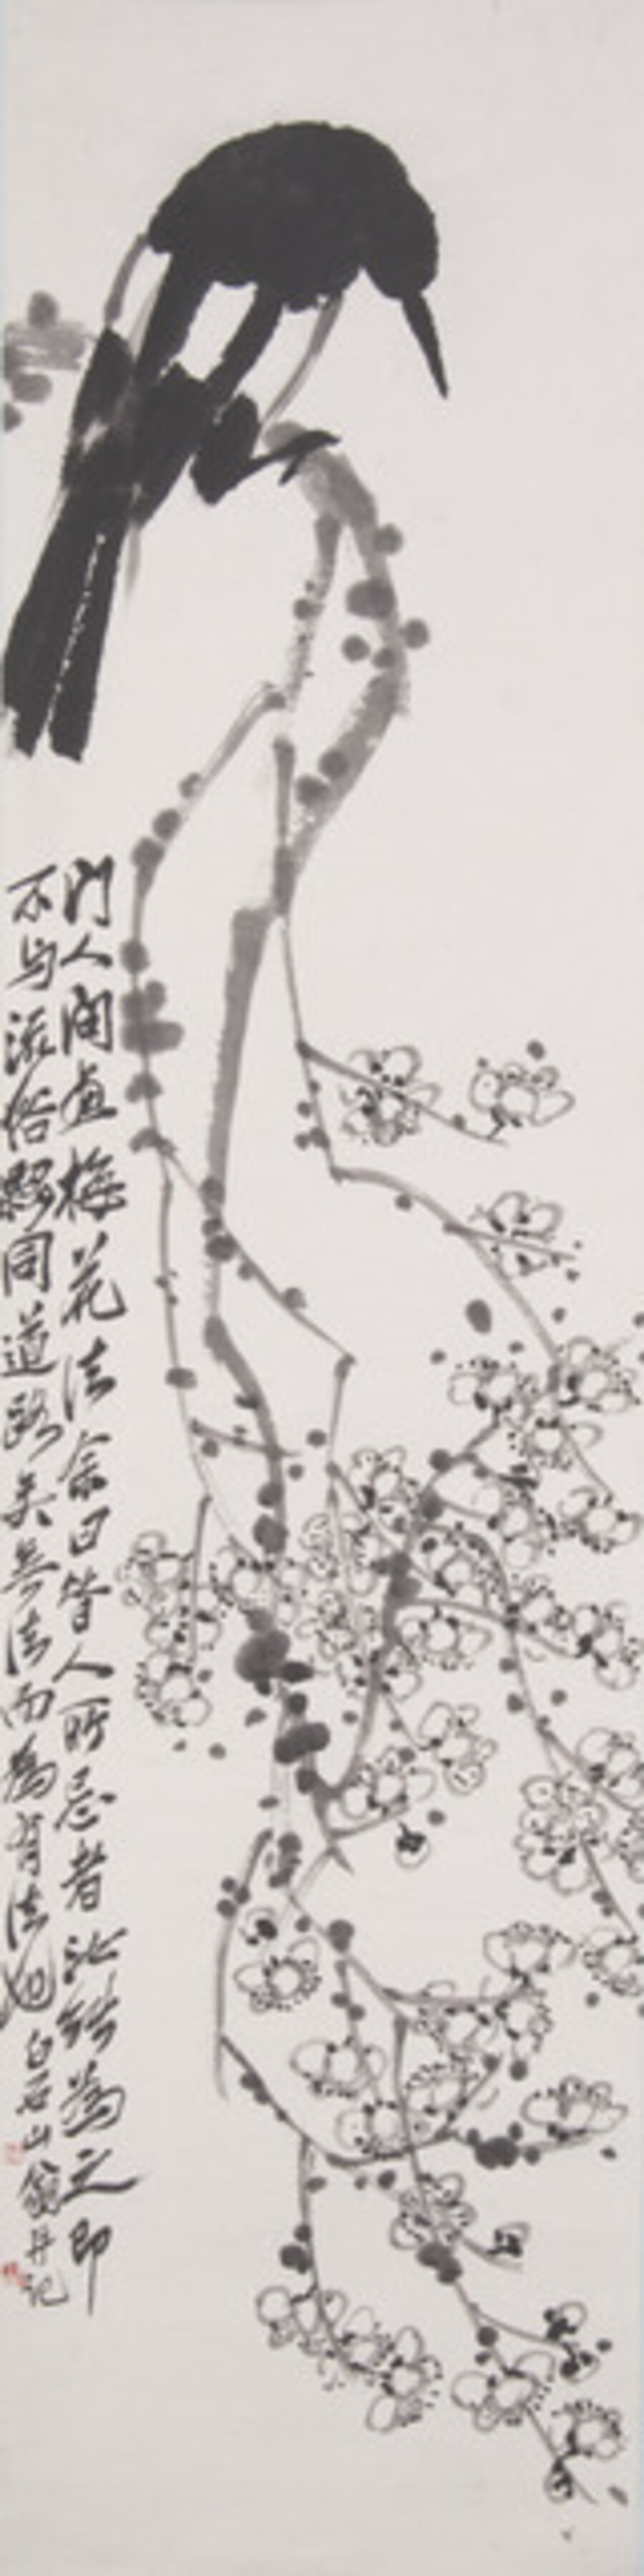 門人問畫梅花法余曰昔人所忌者汝能為之即
不與流俗夥同道路矣無法而為有法也
白石山翁并記